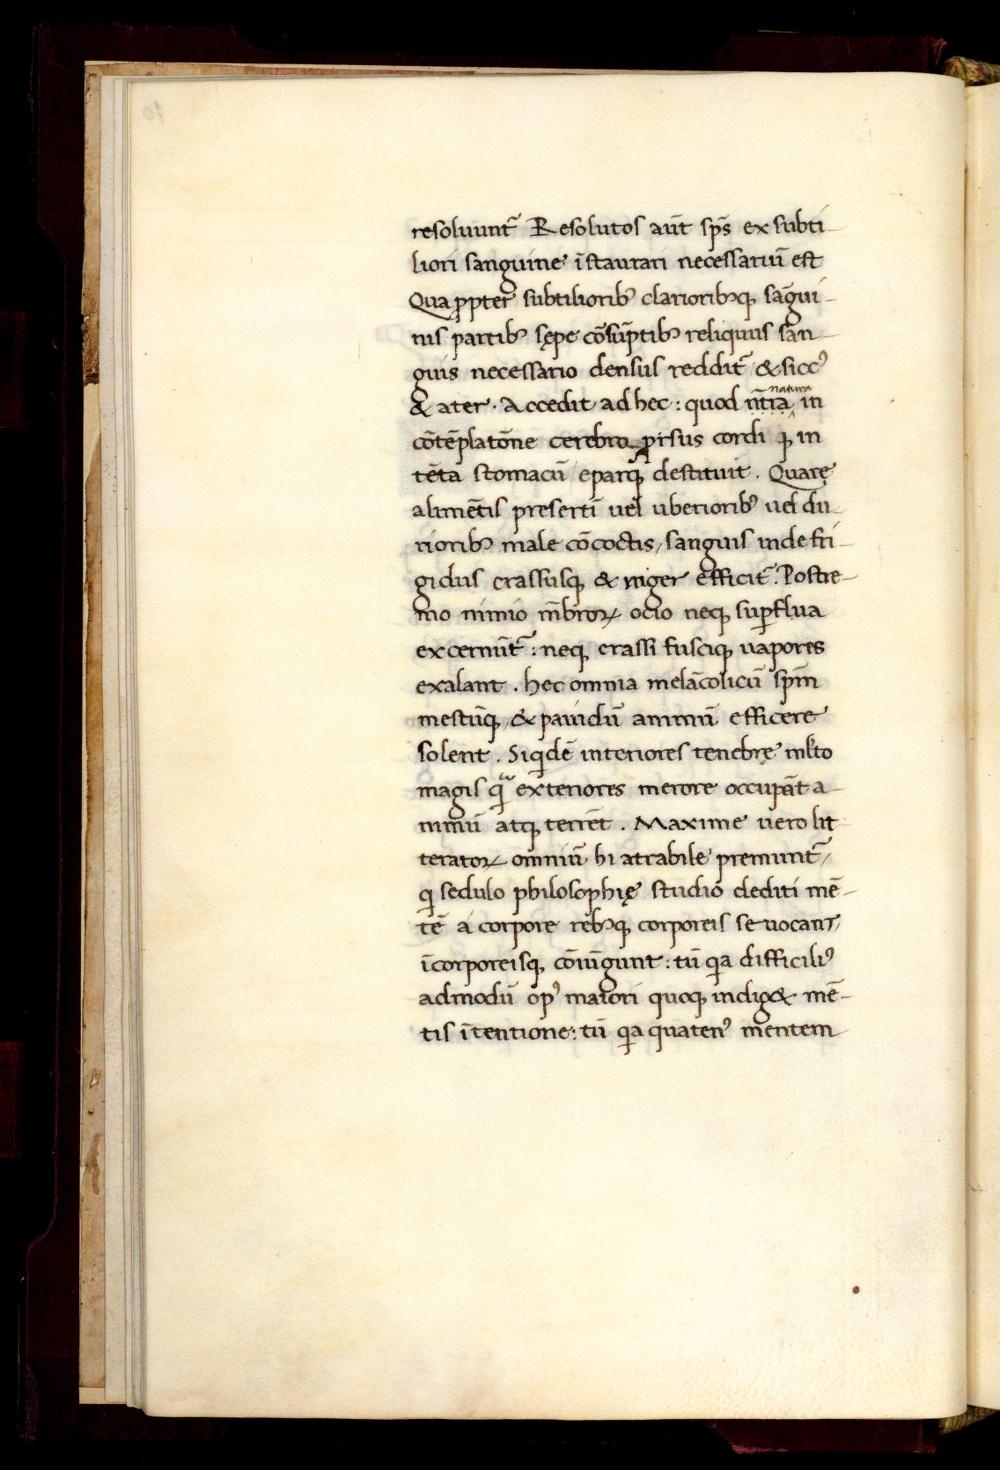 resoluunt᷒ Resolutos aūt sp̄s ex subti-
liori sanguine īstaurari necessariū est
Qua ꝓpter subtiliorib᷒ clariorib᷒qꝫ sāgui-
nis partib᷒ sępe cōsūptib᷒ reliquus san-
guis necessario densus reddit᷒ & sicc᷒
& ater. Accedit ad hec: quod nt̄ra natura in
cōtēplatōne cerebro ꝓrsus cordi qꝫ in
tēta stomacū eparqꝫ destituit. Quarę
alimētis presertī uel uberiorib᷒ uel du-
riorib᷒ male cōcoctis, sanguis inde fri-
gidus crassusqꝫ & niger efficit᷒. Postre-
mo nimio mēbroꝝ ocio neqꝫ suꝑflua
excernūt᷒: neqꝫ crassi fusciqꝫ uapores
exalant. hec omnia melācolicū sp̄m
mestūqꝫ & pauidū animū efficere
solent. Siqidē interiores tenebrę mlto
magis qᷓ exteriores merore occupāt a-
nimū atqꝫ terrēt. Maxime uero lit
teratoꝝ omniū hi atrabile premunt᷒,
qi sedulo philosophię studio dediti mē-
tē a corpore reb᷒qꝫ corporeis seuocant,
īcorporeisqꝫ cōiūgunt: tū qia difficili᷒
admodū op᷒ maiori quoqꝫ indig& mē-
tis ītentione: tū qia quaten᷒ mentem
10